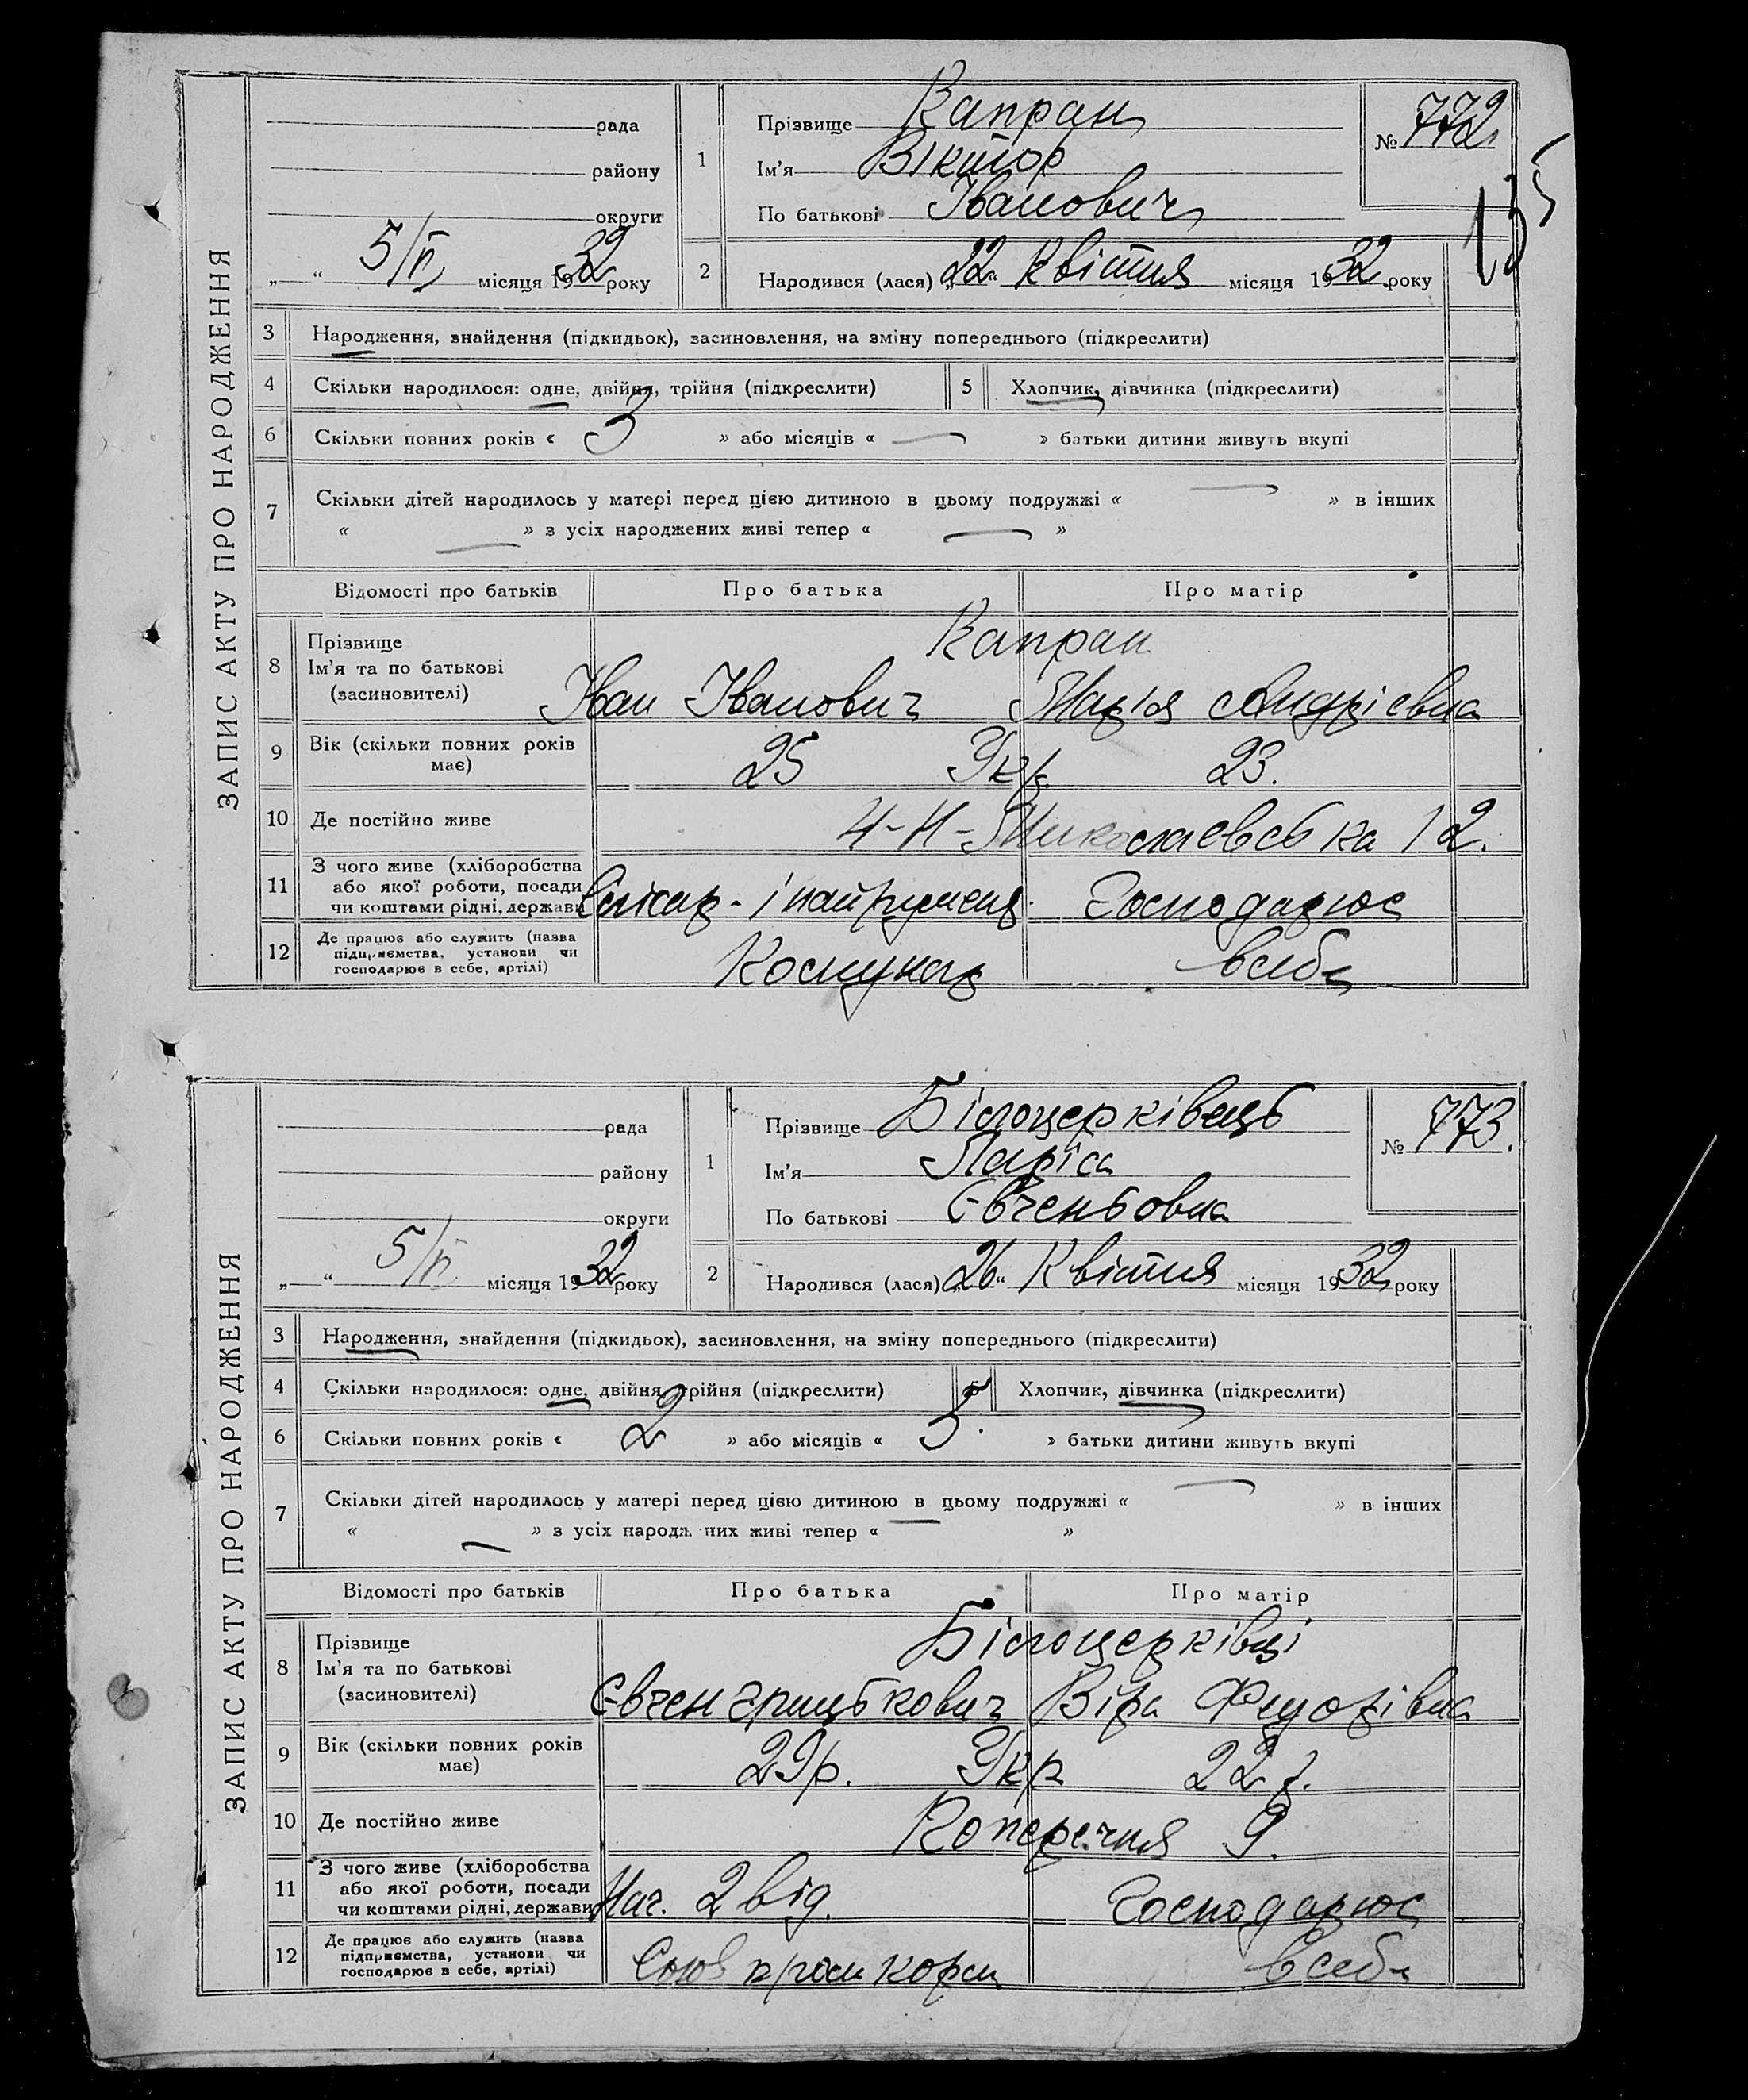 ЗАПИС АКТУ ПРО НАРОДЖЕННЯ
рада
району
округи
„ “ 5/VI місяця 1932 року
1 Прізвище Капран
Ім'я Віктор
По батькові Іванович
№ 772
135
2 Народився (лася) „22“ Квітня місяця 1932 року
3 Народження, знайдення (підкидьок), засиновлення, на зміну попереднього (підкреслити)
4 Скільки народилося: одне, двійня, трійня (підкреслити) 5 Хлопчик, дівчинка (підкреслити)
6 Скільки повних років « 3 » або місяців « — » батьки дитини живуть вкупі
7 Скільки дітей народилось у матері перед цією дитиною в цьому подружжі « — » в інших
« — » з усіх народжених живі тепер « — »
Відомості про батьків Про батька Про матір
8 Прізвище Капран
Ім'я та по батькові Іван Іванович Марія Андрієвна
(засиновителі)
9 Вік (скільки повних років має) 25 Укр. 23.
10 Де постійно живе 4-Н-Миколаєвська 12.
11 З чого живе (хліборобства або якої роботи, посади чи коштами рідні, держави Слісар- Господарює
12 Де працює або служить (назва підприємства, установи чи господарює в себе, артілі) Комунар всебе
ЗАПИС АКТУ ПРО НАРОДЖЕННЯ
рада
району
округи
„ “ 5/VI місяця 1932 року
1 Прізвище Білоцерківець
Ім'я Ларіса
По батькові Євченьовна
№ 773.
2 Народився (лася) „26“ Квітня місяця 1932 року
3 Народження, знайдення (підкидьок), засиновлення, на зміну попереднього (підкреслити)
4 Скільки народилося: одне, двійня, трійня (підкреслити) 5 Хлопчик, дівчинка (підкреслити)
6 Скільки повних років « 2 » або місяців « 5. » батьки дитини живуть вкупі
7 Скільки дітей народилось у матері перед цією дитиною в цьому подружжі « — » в інших
« — » з усіх народж них живі тепер « — »
Відомості про батьків Про батька Про матір
8 Прізвище Білоцерківці
Ім'я та по батькові Євген Грицькович Віра Федорівна
(засиновителі)
9 Вік (скільки повних років має) 29р. Укр 22 р.
10 Де постійно живе Поперечня 9.
11 З чого живе (хліборобства або якої роботи, посади чи коштами рідні, держави Нач. 2 від. Господарює
12 Де працює або служить (назва підприємства, установи чи господарює в себе, артілі) всебе